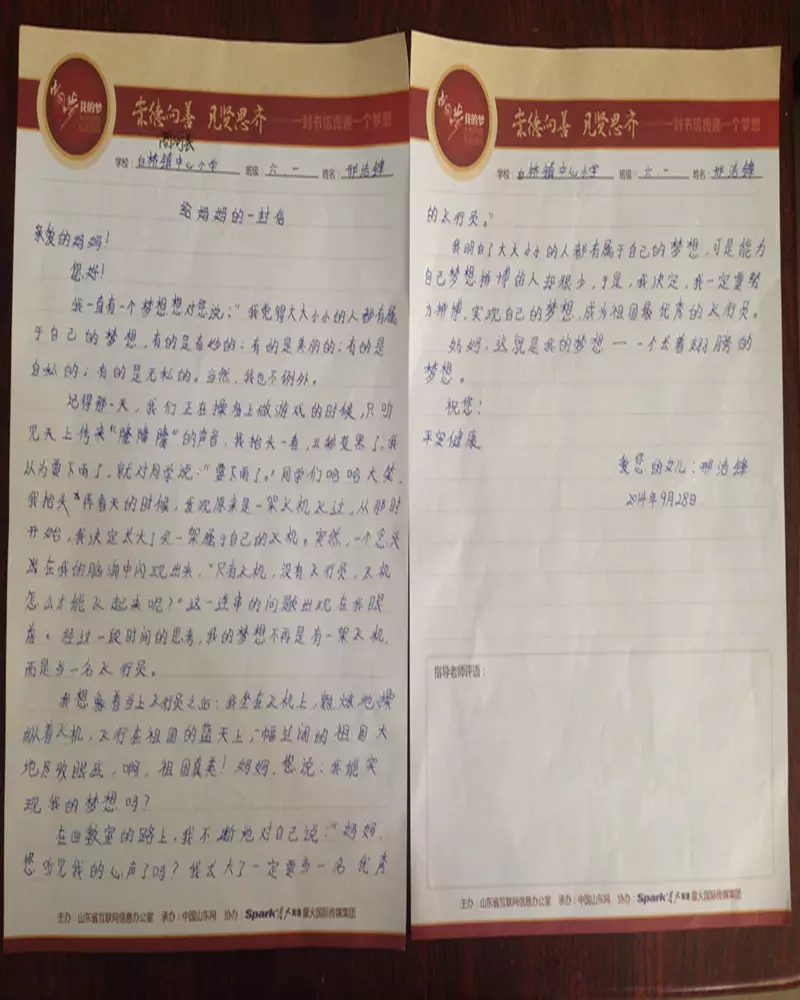 中国梦
我的梦
崇德向善 见贤思齐 ——一封书信传递一个梦想
学校：白桥镇中心小学 班级：六.一 姓名：邢洁锋
给妈妈的一封信
亲爱的妈妈！
您好！
我一直有一个梦想想对您说：“我觉得大大小小的人都有属
于自己的梦想，有的是奇妙的；有的是美丽的；有的是
自私的；有的是无私的。当然，我也不例外。
记得那一天，我们正在操场上做游戏的时候，只听
见天上传来“隆隆隆”的声音，我抬头一看，云都变黑了，我
以为要下雨了，就对同学说：“要下雨了。”同学们哈哈大笑，
我抬头再看天的时候，发现原来是一架飞机飞过，从那时
开始，我决定长大了买一架属于自己的飞机。突然，一个念头
在我的脑海中闪现出来，“只有飞机，没有飞行员，飞机
怎么才能飞起来呢？”这一连串的问题出现在我眼
前。经过一段时间的思考，我的梦想不再是有一架飞机，
而是当一名飞行员。
我想象着当上飞行员之后：我坐在飞机上，熟练地操
纵着飞机，飞行在祖国的蓝天上，幅辽阔的祖国大
地尽收眼底，啊，祖国真美！妈妈，您说：我能实
现我的梦想吗？
在回教室的路上，我不断地对自己说：“妈妈，
您听见我的心声了吗？我长大了一定要当一名优秀
主办：山东省互联网信息办公室 承办：中国山东网 协办：Spark 星火国际传媒集团
中国梦
我的梦
崇德向善 见贤思齐 ——一封书信传递一个梦想
学校：白桥镇中心小学 班级：六.一 姓名：邢洁锋
的飞行员。”
我明白了大大小小的人都有属于自己的梦想，可是能为
自己梦想拼博的人却很少，于是，我决定，我一定要努
力拼博，实现自己的梦想，成为祖国最优秀的飞行员。
妈妈，这就是我的梦想——一个长着翅膀的
梦想。
祝您！
平安健康
爱您的女儿：邢洁锋
2014年9月28日
指导老师评语：
主办：山东省互联网信息办公室 承办：中国山东网 协办：Spark 星火国际传媒集团